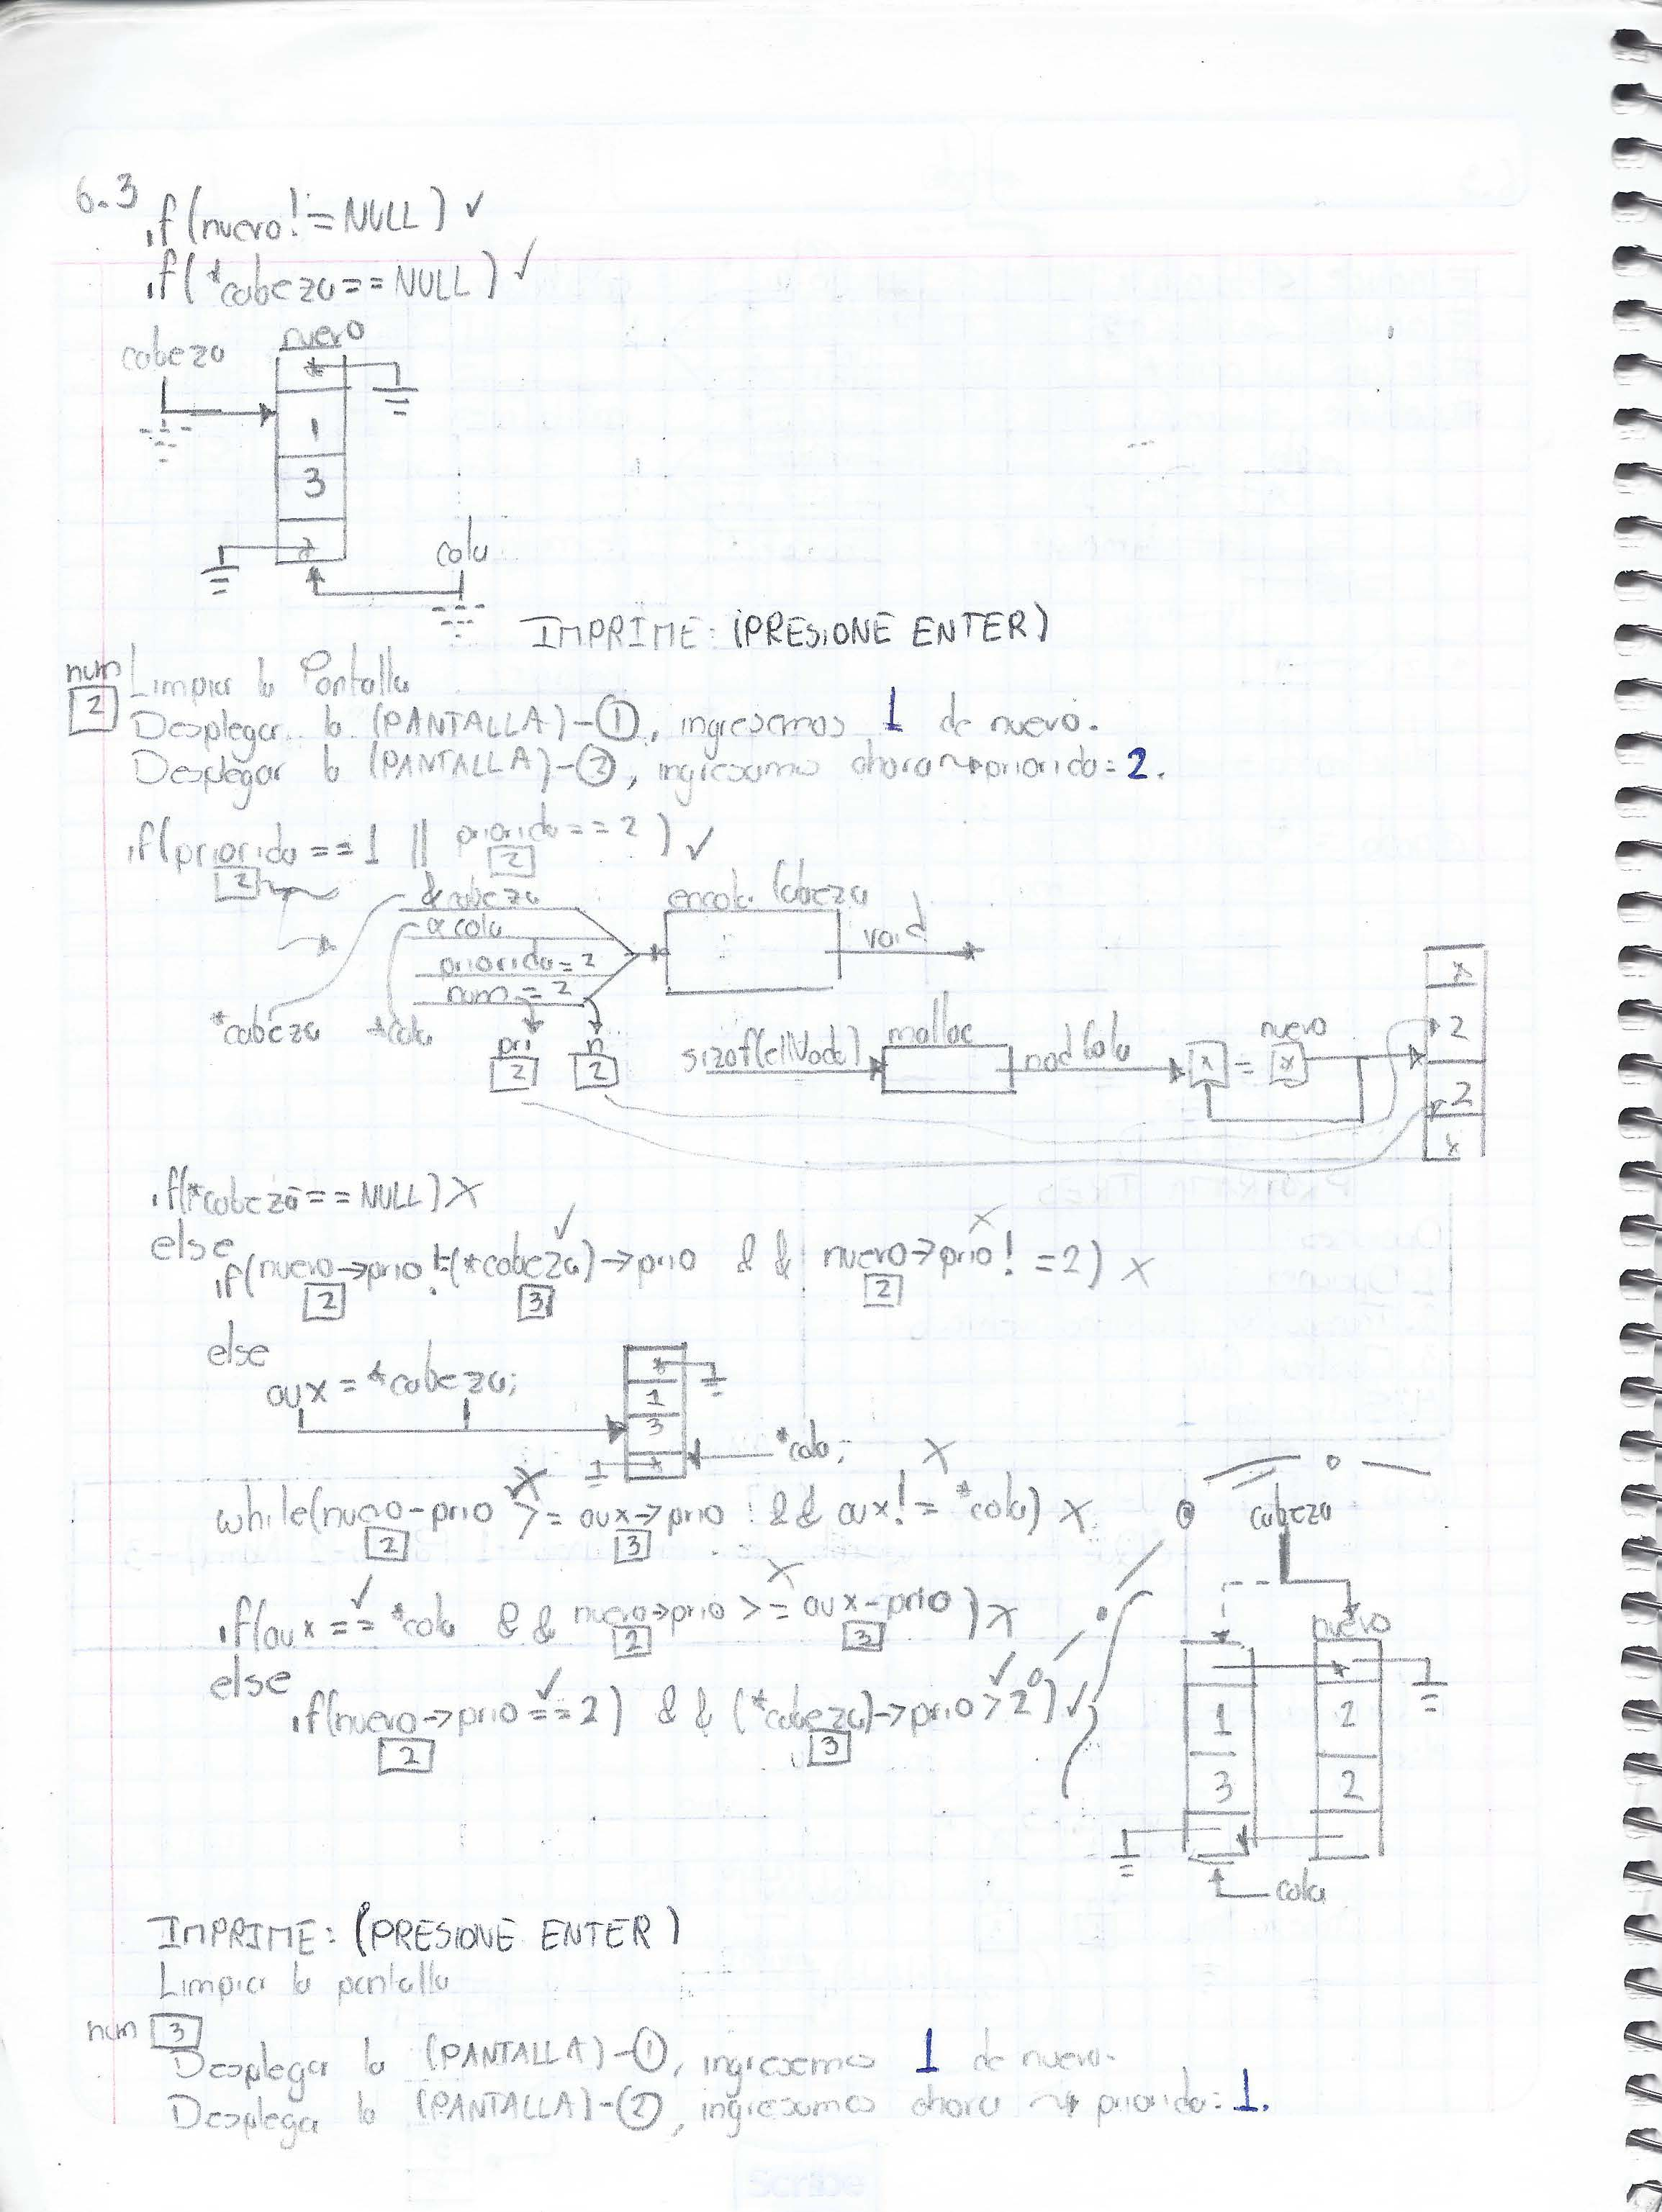 6.3
if(nuevo!=NULL) ✓
if(*cabeza==NULL) ✓
nuevo
cabeza
*
1
3
*
cola
IMPRIME: (PRESIONE ENTER)
num
2
Limpiar la Pantalla
Desplegar la (PANTALLA)-①, ingresemos 1 de nuevo.
Desplegar la (PANTALLA)-②, ingresamo ahora priorida=2.
if(priorida==1 || priorida==2) ✓
2 2
&cabeza
&cola
priorida=2
num=2
encola Cabeza
void
*cabeza *cola
pri n
2 2
sizof(elNodo) malloc nodCola * = * nuevo
*
2
2
*
if(*cabeza==NULL) X
else
if(nuevo->prio != (*cabeza)->prio && nuevo->prio! =2) X
2 3 2
else
aux = *cabeza;
*
1
3
*
*cola;
while(nuevo-prio >= aux->prio && aux!= *cola) X
2 3
if(aux== *cola && nuevo->prio >= aux-prio) X
2 3
else
if(nuevo->prio==2) && (*cabeza)->prio>2) ✓
2 3
cabeza
nuevo
*
1 2
3 2
cola
IMPRIME: (PRESIONE ENTER)
Limpia la pantalla
num 3
Desplega la (PANTALLA)-①, ingresemos 1 de nuevo.
Desplega la (PANTALLA)-②, ingresamos ahora priorida: 1.
Scribe